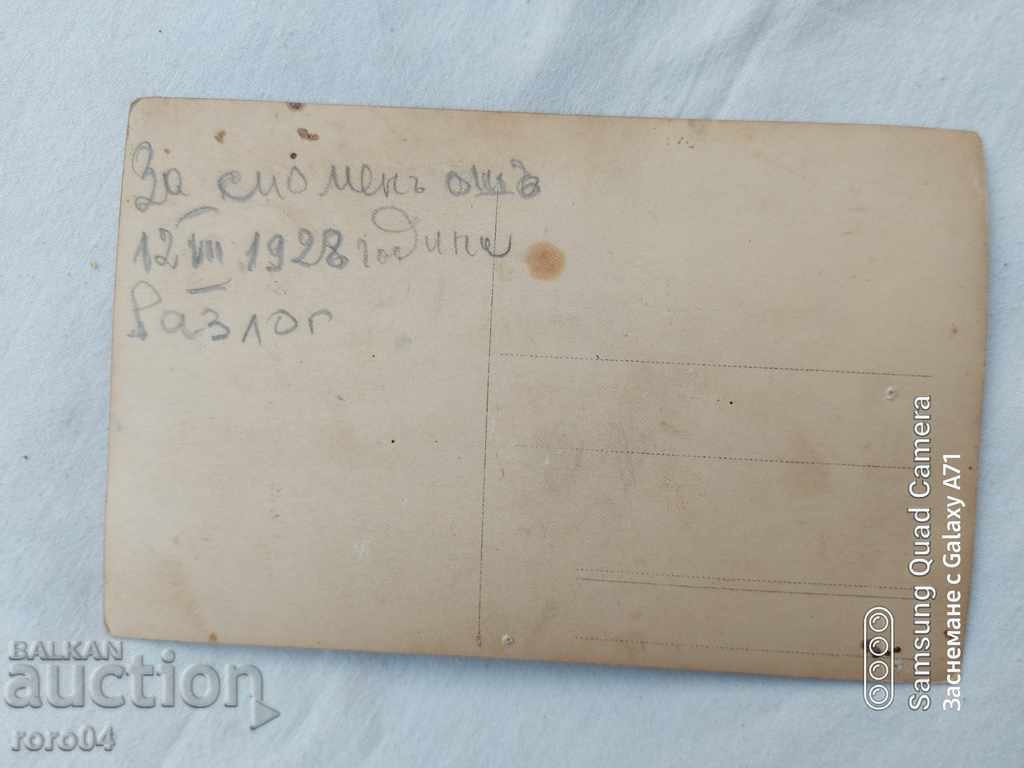 За споменъ отъ
12 VII 1928 година
Разлог
Samsung Quad Camera
Заснемане с Galaxy A71
BALKAN
auction
roro04